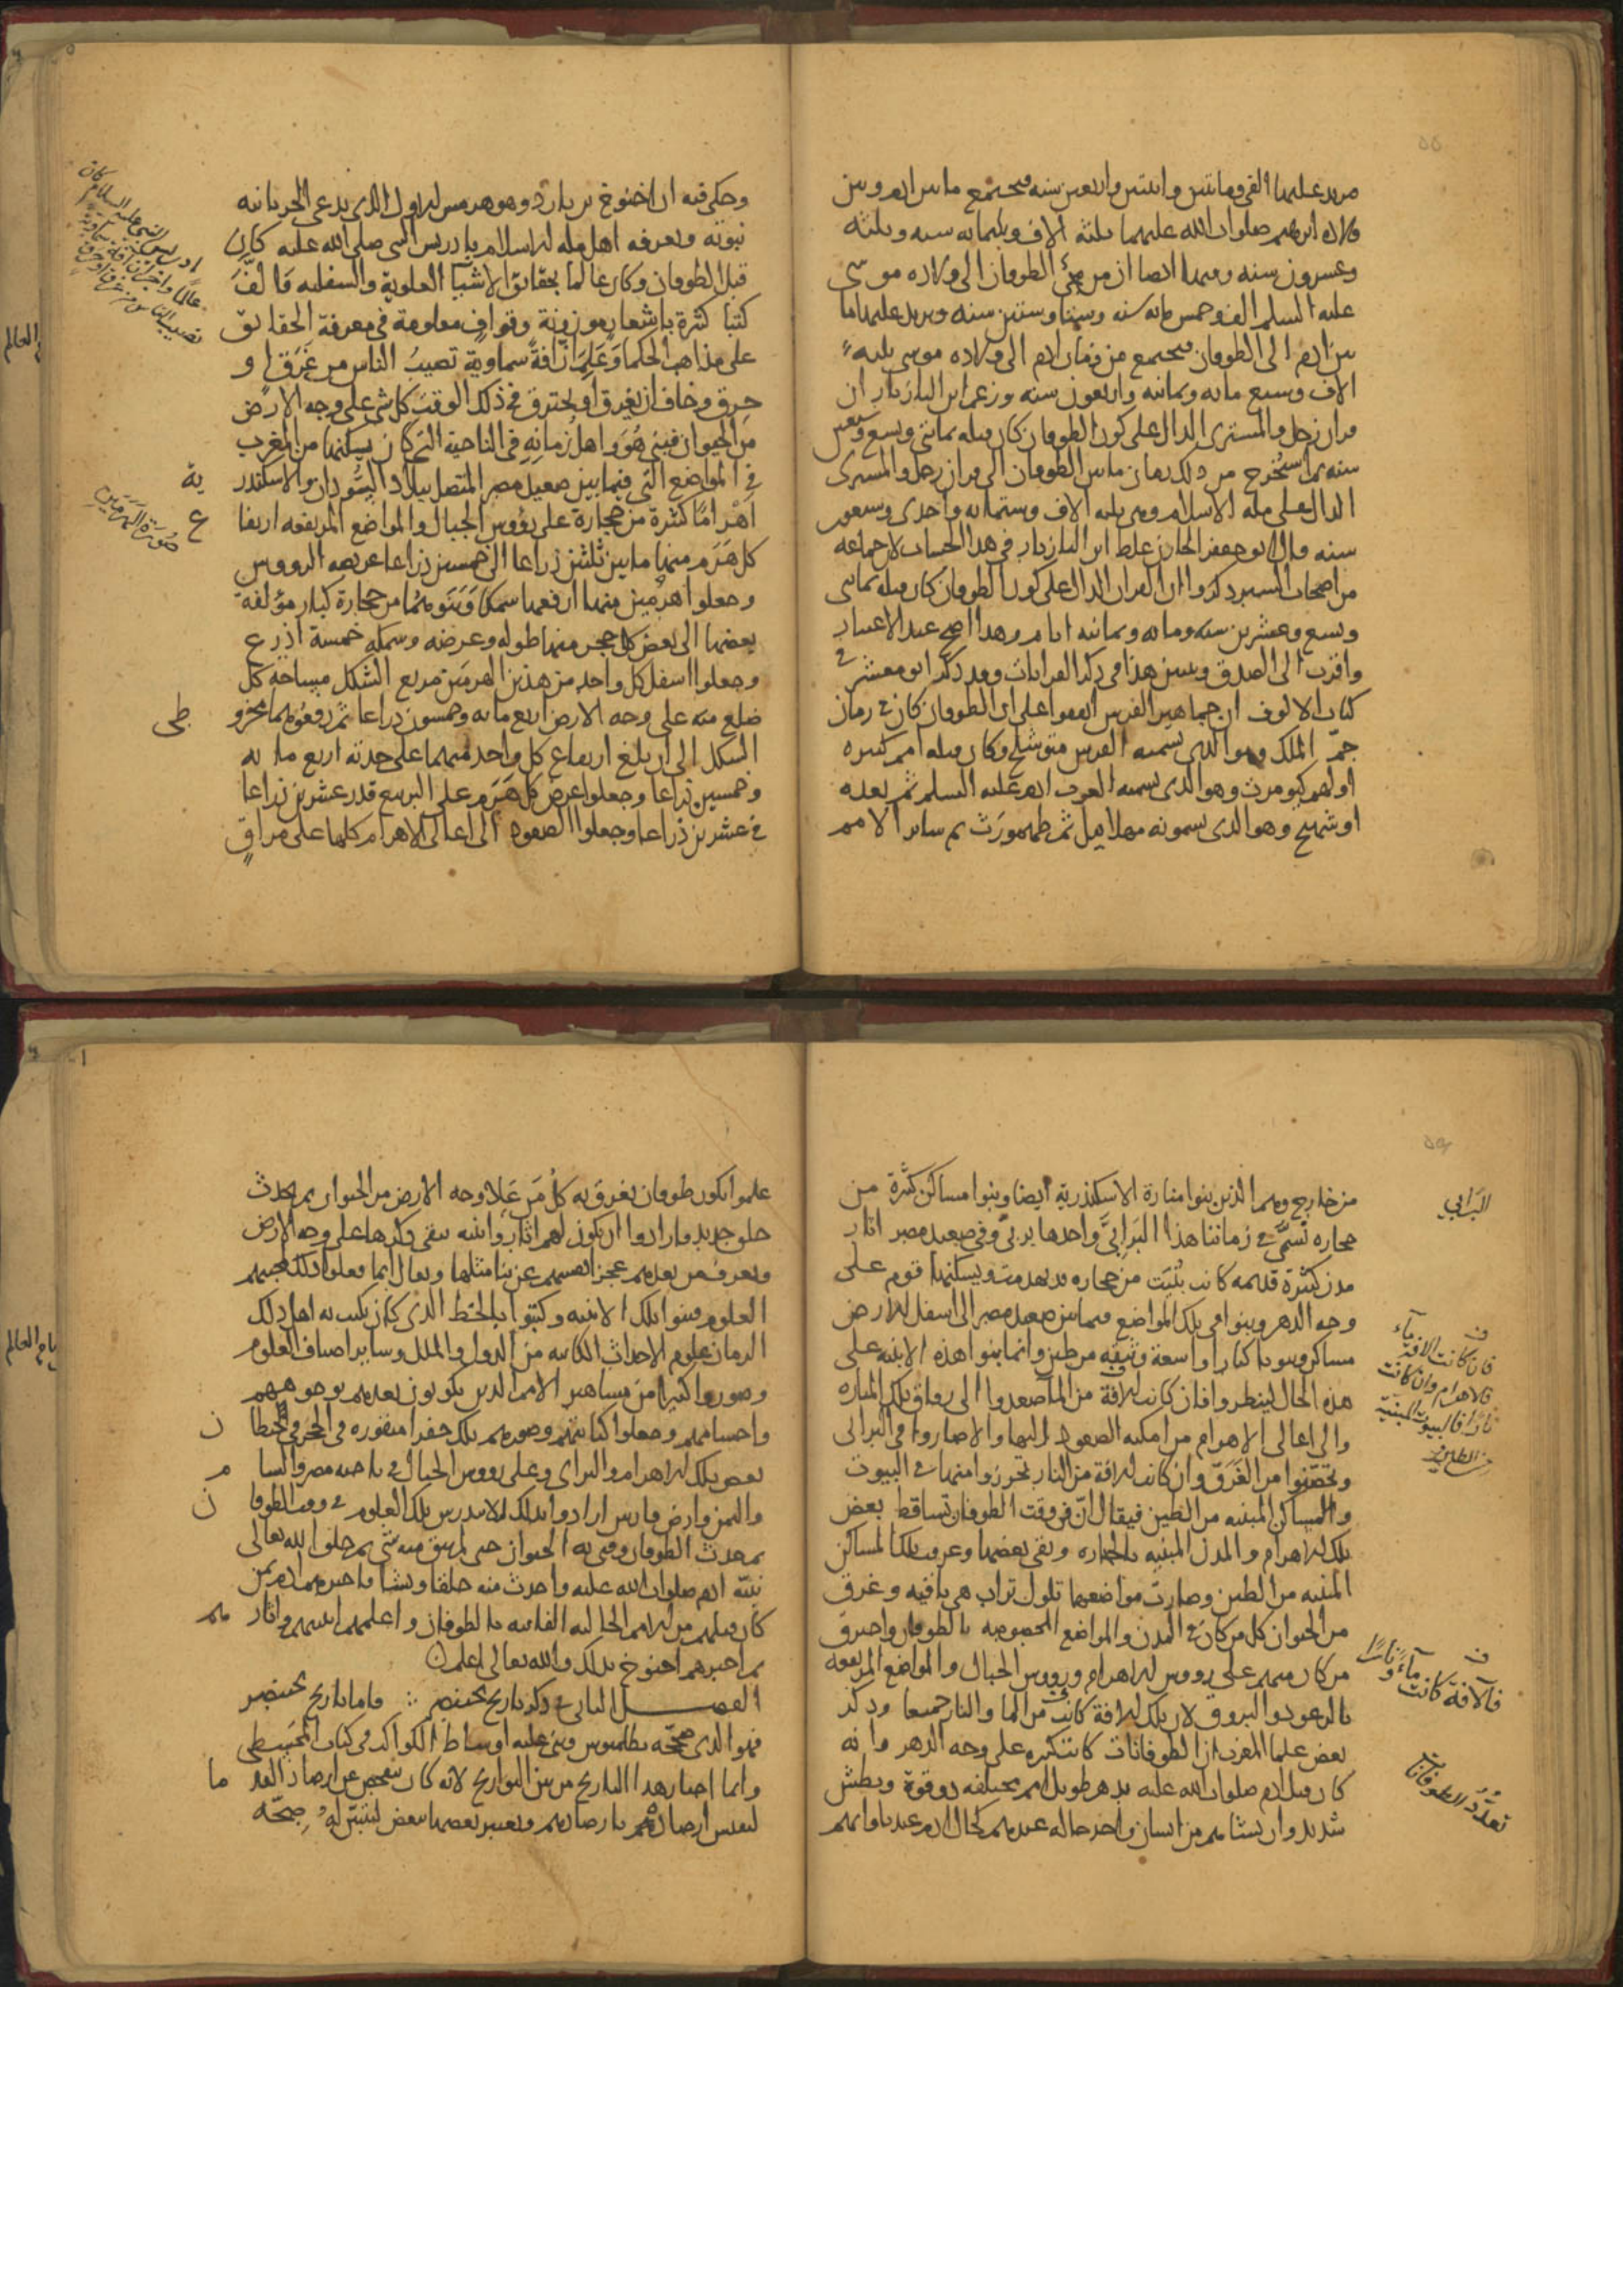 مزيد عليها الفى ومائتين واثنتين واربعين سنه فيجتمع ما بين ادم وبين
ولاده ابرهيم صلوات الله عليهما ثلثة الاف وثلثمايه سنه وثلثه
وعشرون سنه وبهذا ايضا ان من مجئ الطوفان الى ولاده موسى
عليه السلم الف وخمس مايه سنه وستا وستين سنه ويزيد عليها ما
بين ادم الى الطوفان فيجتمع من زمان ادم الى ولاده موسى ثلثة
الاف وسبع مايه وثمانيه واربعون سنه وزعم ابن البازيار ان
قران زحل والمشترى الدال على كون الطوفان كان قبله بمائتى وتسع وتسعين
سنه ثم استخرج من ذلك زمان ما بين الطوفان الى قران زحل والمشترى
الدال على مله الاسلام وهى ثلثه الاف وستمايه واحدى وسبعون
سنه وقال ابو جعفر الخازن غلط ابن البازيار فى هذا الحساب لان جماعه
من اصحاب السير ذكروا ان القران الدال على كون الطوفان كان قبله بمائتى
وتسع وعشرين سنه ومايه وثمانيه ايام وهذا اصح عند الاعتبار
واقرب الى الصدق وسنبين هذا فى ذكر القرانات وقد ذكر ابو معشر فى
كتاب الالوف ان جماهير الفرس اتفقوا على ان الطوفان كان فى زمان
جم الملك وهو الذى يسميه الفرس متوشلخ وكان قبله امم كثيره
اولهم كيومرث وهو الذى يسميه العرب ادم عليه السلم ثم بعده
اوشهنج وهو الذى يسمونه مهلاييل ثم طهمورث ثم ساير الامم
وحكى فيه ان اخنوخ بن يارد وهو هرمس الاول الذى يدعى الحرنانيه
نبوته ويعرفه اهل مله الاسلام بادريس النبى صلى الله عليه كان
قبل الطوفان وكان عالما بحقائق الاشيا العلوية والسفليه فالّف
كتبا كثرة باشعار موزونة وقواف معلومة فى معرفة الحقايق
على مذاهب الحكما وعلم ان آفة سماوية تصيب الناس من غرق او
حرق وخاف ان يغرق او يحترق فى ذلك الوقت كل شى على وجه الارض
من الحيوان فبنى هو واهل زمانه فى الناحية التى كان يسكنها من المغرب
فى المواضع التى فيما بين صعيد مصر المتصل ببلاد السودان والاسكندر ية
اهراما كثرة من حجارة على رؤوس الجبال والمواضع المرتفعه ارتفا ع
كل هرم منها ما بين ثلثين ذراعا الى خمسين ذراعا عريضه الرووس
وجعلوا هرمين منها ارفعها سمكا وبنوهما من حجارة كبار مؤلفة
بعضها الى بعض كل حجر منها طوله وعرضه وسمكه خمسة اذرع
وجعلوا اسفل كل واحد من هذين الهرمين مربع الشكل مساحه كل
ضلع منه على وجه الارض اربع مايه وخمسون ذراعا ثم رفعوهما بمخرو طى
الشكل الى ان بلغ ارتفاع كل واحد منهما على حدته اربع مايه
وخمسين ذراعا وجعلوا عرض كل هرم على التربيع قدر عشرين ذراعا
فى عشرين ذراعا وجعلوا الصعود الى اعالى الاهرام كلها على مراقٍ
ادريس النبى عليه السلام كان
عالما واخبر ان آفة سماوية
تصيب الناس من غرق او حرق
صورة الهرمين
من خارج وهم الذين بنوا منارة الاسكندرية ايضا وبنوا مساكن كثرة من
حجاره تسمى فى زماننا هذا البرابى واحدها بربى وفى صعيد مصر اثار
مدن كثرة قديمه كانت بنيت من حجاره قد تهدمت ويسكنها قوم على
وجه الدهر وبنوا فى تلك المواضع فيما بين صعيد مصر الى اسفل الارض
مساكن وبيوتا كبارا واسعة وثيقه من طين وانما بنوا هذه الابنيه على
هذه الحال لينظروا فان كانت الافة من الما صعدوا الى رواق تلك المناره
والى اعالى الاهرام من امكنه الصعود اليها والا صاروا فى البرابى
وتحصنوا من الغرق وان كانت الافة من النار تحرزوا منها فى البيوت
والمساكن المبنيه من الطين فيقال ان فى وقت الطوفان تساقط بعض
تلك الاهرام والمدن المبنيه بالحجاره وبقى بعضها وغرقت تلك المساكن
المبنيه من الطين وصارت مواضعها تلول تراب هى باقيه وغرق
من الحيوان كل من كان فى المدن والمواضع المخصوصه بالطوفان واحترق
من كان منهم على رووس الاهرام ورووس الجبال والمواضع المرتفعه
بالرعود والبروق لان تلك الافة كانت من الما والنار جميعا وذكر
بعض علما المغرب ان الطوفانات كانت كثيره على وجه الدهر وانه
كان قبل ادم صلوات الله عليه بدهر طويل امم مختلفه ذو قوة وبطش
شديد وان نشاهم من انسان واحد حاله عندهم كحال ادم عندنا وانهم
البرابي
فان كانت الافة ماء
فالاهرام وان كانت
نارا فالبيوت المبنية
من الطين
فالآفة كانت ماء ونارا
تعدد الطوفانات
علموا بكون طوفان يغرق به كل من علا وجه الارض من الحيوان ثم يحدث
خلق جديد فارادوا ان يكون لهم اثار وابنيه يبقى ذكرها على وجه الارض
ويعرف من بعدهم عجز انفسهم عن بنا مثلها ويقال انما فعلوا ذلك لمحبتهم
العلوم فبنوا تلك الابنيه وكتبوا بالخط الذى كان يكتب به اهل ذلك
الزمان علوم الاحداث الكاينه من الدول والملل وساير اصناف العلوم
وصوروا كثيرا من مشاهير الامم الذين يكونون بعدهم بوجوههم
واجسامهم وجعلوا كتابتهم وصورهم تلك حفرا منقوره فى الحجر فى حيطا ن
بعض تلك الاهرام والبرابى وعلى رووس الجبال فى ناحيه مصر والشا م
واليمن وارض فارس ارادوا بذلك ان لا تندرس تلك العلوم فى وقت الطوفا ن
ثم حدث الطوفان وفنى به الحيوان حتى لم يبق منه شى ثم خلق الله تعالى
نبيه ادم صلوات الله عليه واحدث منه خلقا ونشا فاخبرهم ادم بمن
كان قبلهم من الامم الخاليه الفانيه بالطوفان واعلمهم ابنيتهم واثار هم
ثم اخبرهم اخنوخ بذلك والله تعالى اعلم
الفصــل الثانى فى ذكر تاريخ بختنصر ∴ فاما تاريخ بختنصر
فهو الذى صححه بطلميوس وبنى عليه اوساط الكواكب فى كتاب المجسطى
وانما اختار هذا التاريخ من بين التواريخ لانه كان يفحص عن ارصاد القد ما
ليقيس ارصادهم بارصادهم ويعتبر بعضها ببعض لتتبين له صحته